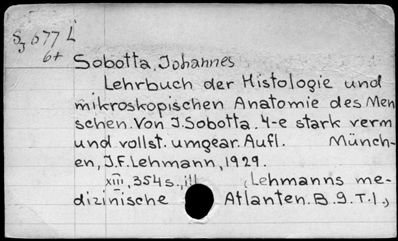 6+
Sobotta, Johannes
Lehrbuch der Histologie und
mikroskopischen Anatomie des Men
schen. Von J. Sobotta. 4-e stark verm
und vollst. umgear. Aufl. Münch-
en, J.F. Lehmann, 1929.
XIII, 354 s., ill (Lehmanns me-
dizinische Atlanten. B. 9. T. 1.)